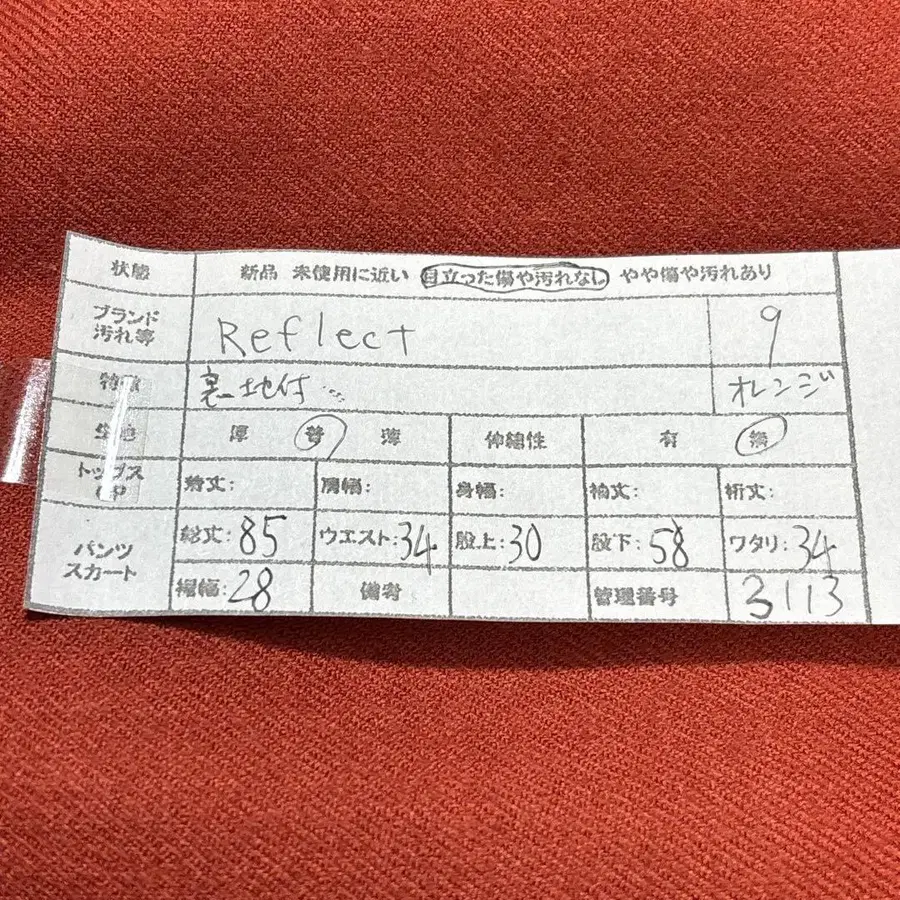 状態 新品 未使用に近い 目立った傷や汚れなし やや傷や汚れあり
ブランド 汚れ等 Reflect 9
特徴 裏地付 オレンジ
生地 厚 普 薄 伸縮性 有 無
トップス OP 着丈: 肩幅: 身幅: 袖丈: 裄丈:
パンツ スカート 総丈:85 ウエスト:34 股上:30 股下:58 ワタリ:34
裾幅:28 備考 管理番号 3113